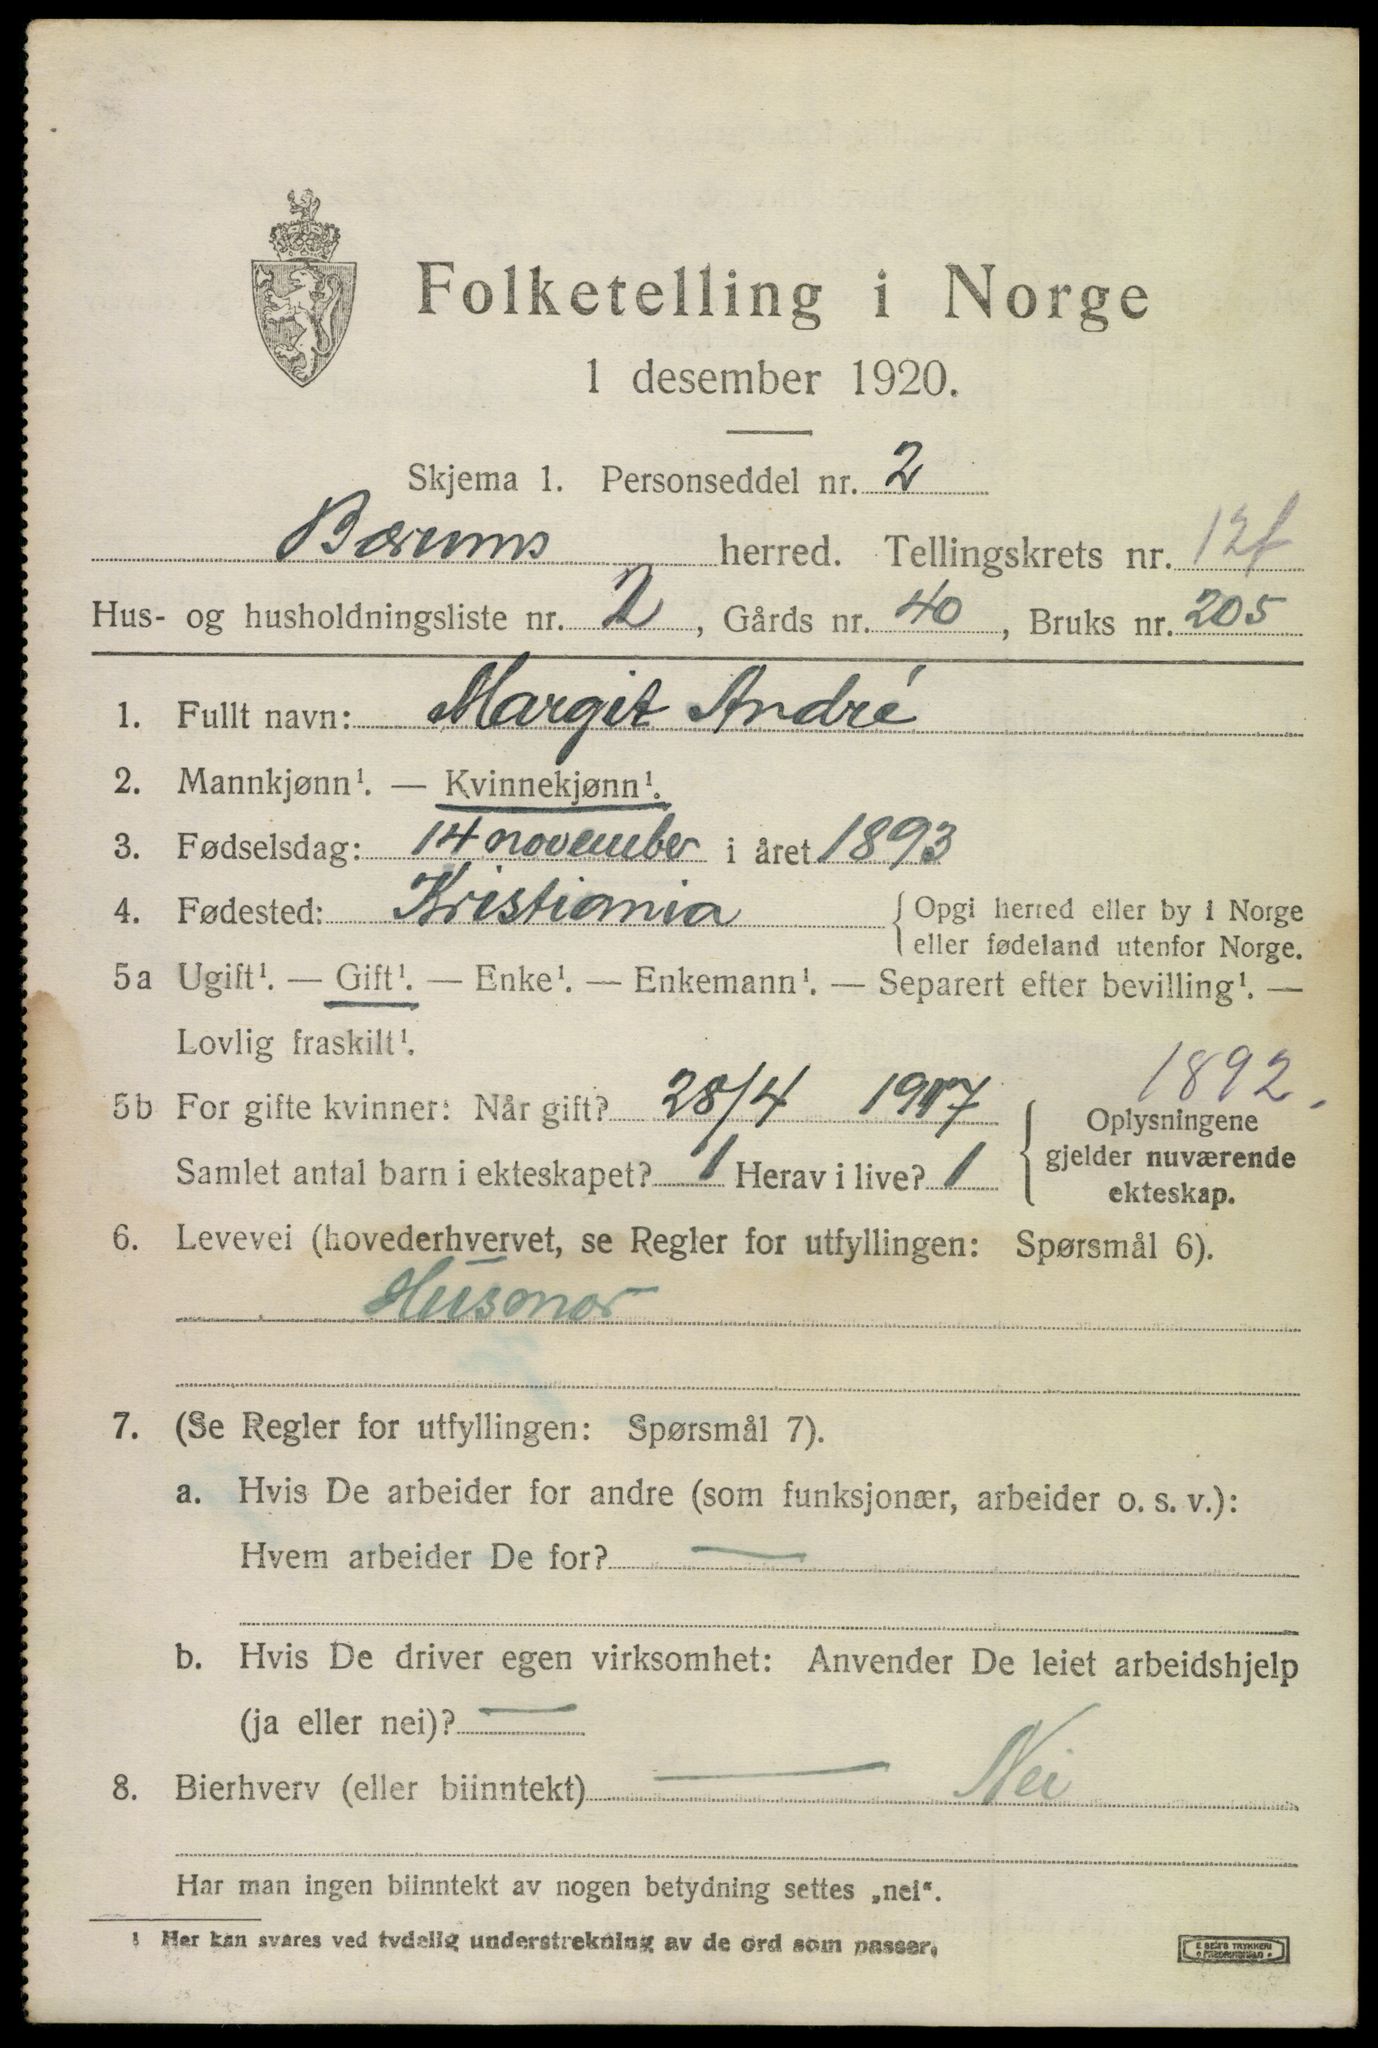 Folketelling i Norge
1 desember 1920.
Skjema 1. Personseddel nr. 2
Bærums herred. Tellingskrets nr. 12f
Hus- og husholdningsliste nr. 2, Gårds nr. 40, Bruks nr. 205
1. Fullt navn: Margit André
2. Mannkjønn¹. — Kvinnekjønn¹.
3. Fødselsdag: 14 november i året 1893
4. Fødested: Kristiania { Opgi herred eller by i Norge
eller fødeland utenfor Norge.
5a Ugift¹. — Gift¹. — Enke¹. — Enkemann¹. — Separert efter bevilling¹. —
Lovlig fraskilt¹.
1892.
5b For gifte kvinner: Når gift? 28/4 1917
Samlet antal barn i ekteskapet? 1 Herav i live? 1
{ Oplysningene
gjelder nuværende
ekteskap.
6. Levevei (hovederhvervet, se Regler for utfyllingen: Spørsmål 6).
Husmor
7. (Se Regler for utfyllingen: Spørsmål 7).
a. Hvis De arbeider for andre (som funksjonær, arbeider o. s. v.):
Hvem arbeider De for? —
b. Hvis De driver egen virksomhet: Anvender De leiet arbeidshjelp
(ja eller nei)? —
8. Bierhverv (eller biinntekt) — Nei
Har man ingen biinntekt av nogen betydning settes „nei“.
¹ Her kan svares ved tydelig understrekning av de ord som passer.
E SEM'S TRYKKERI
FREDRIKSHALD